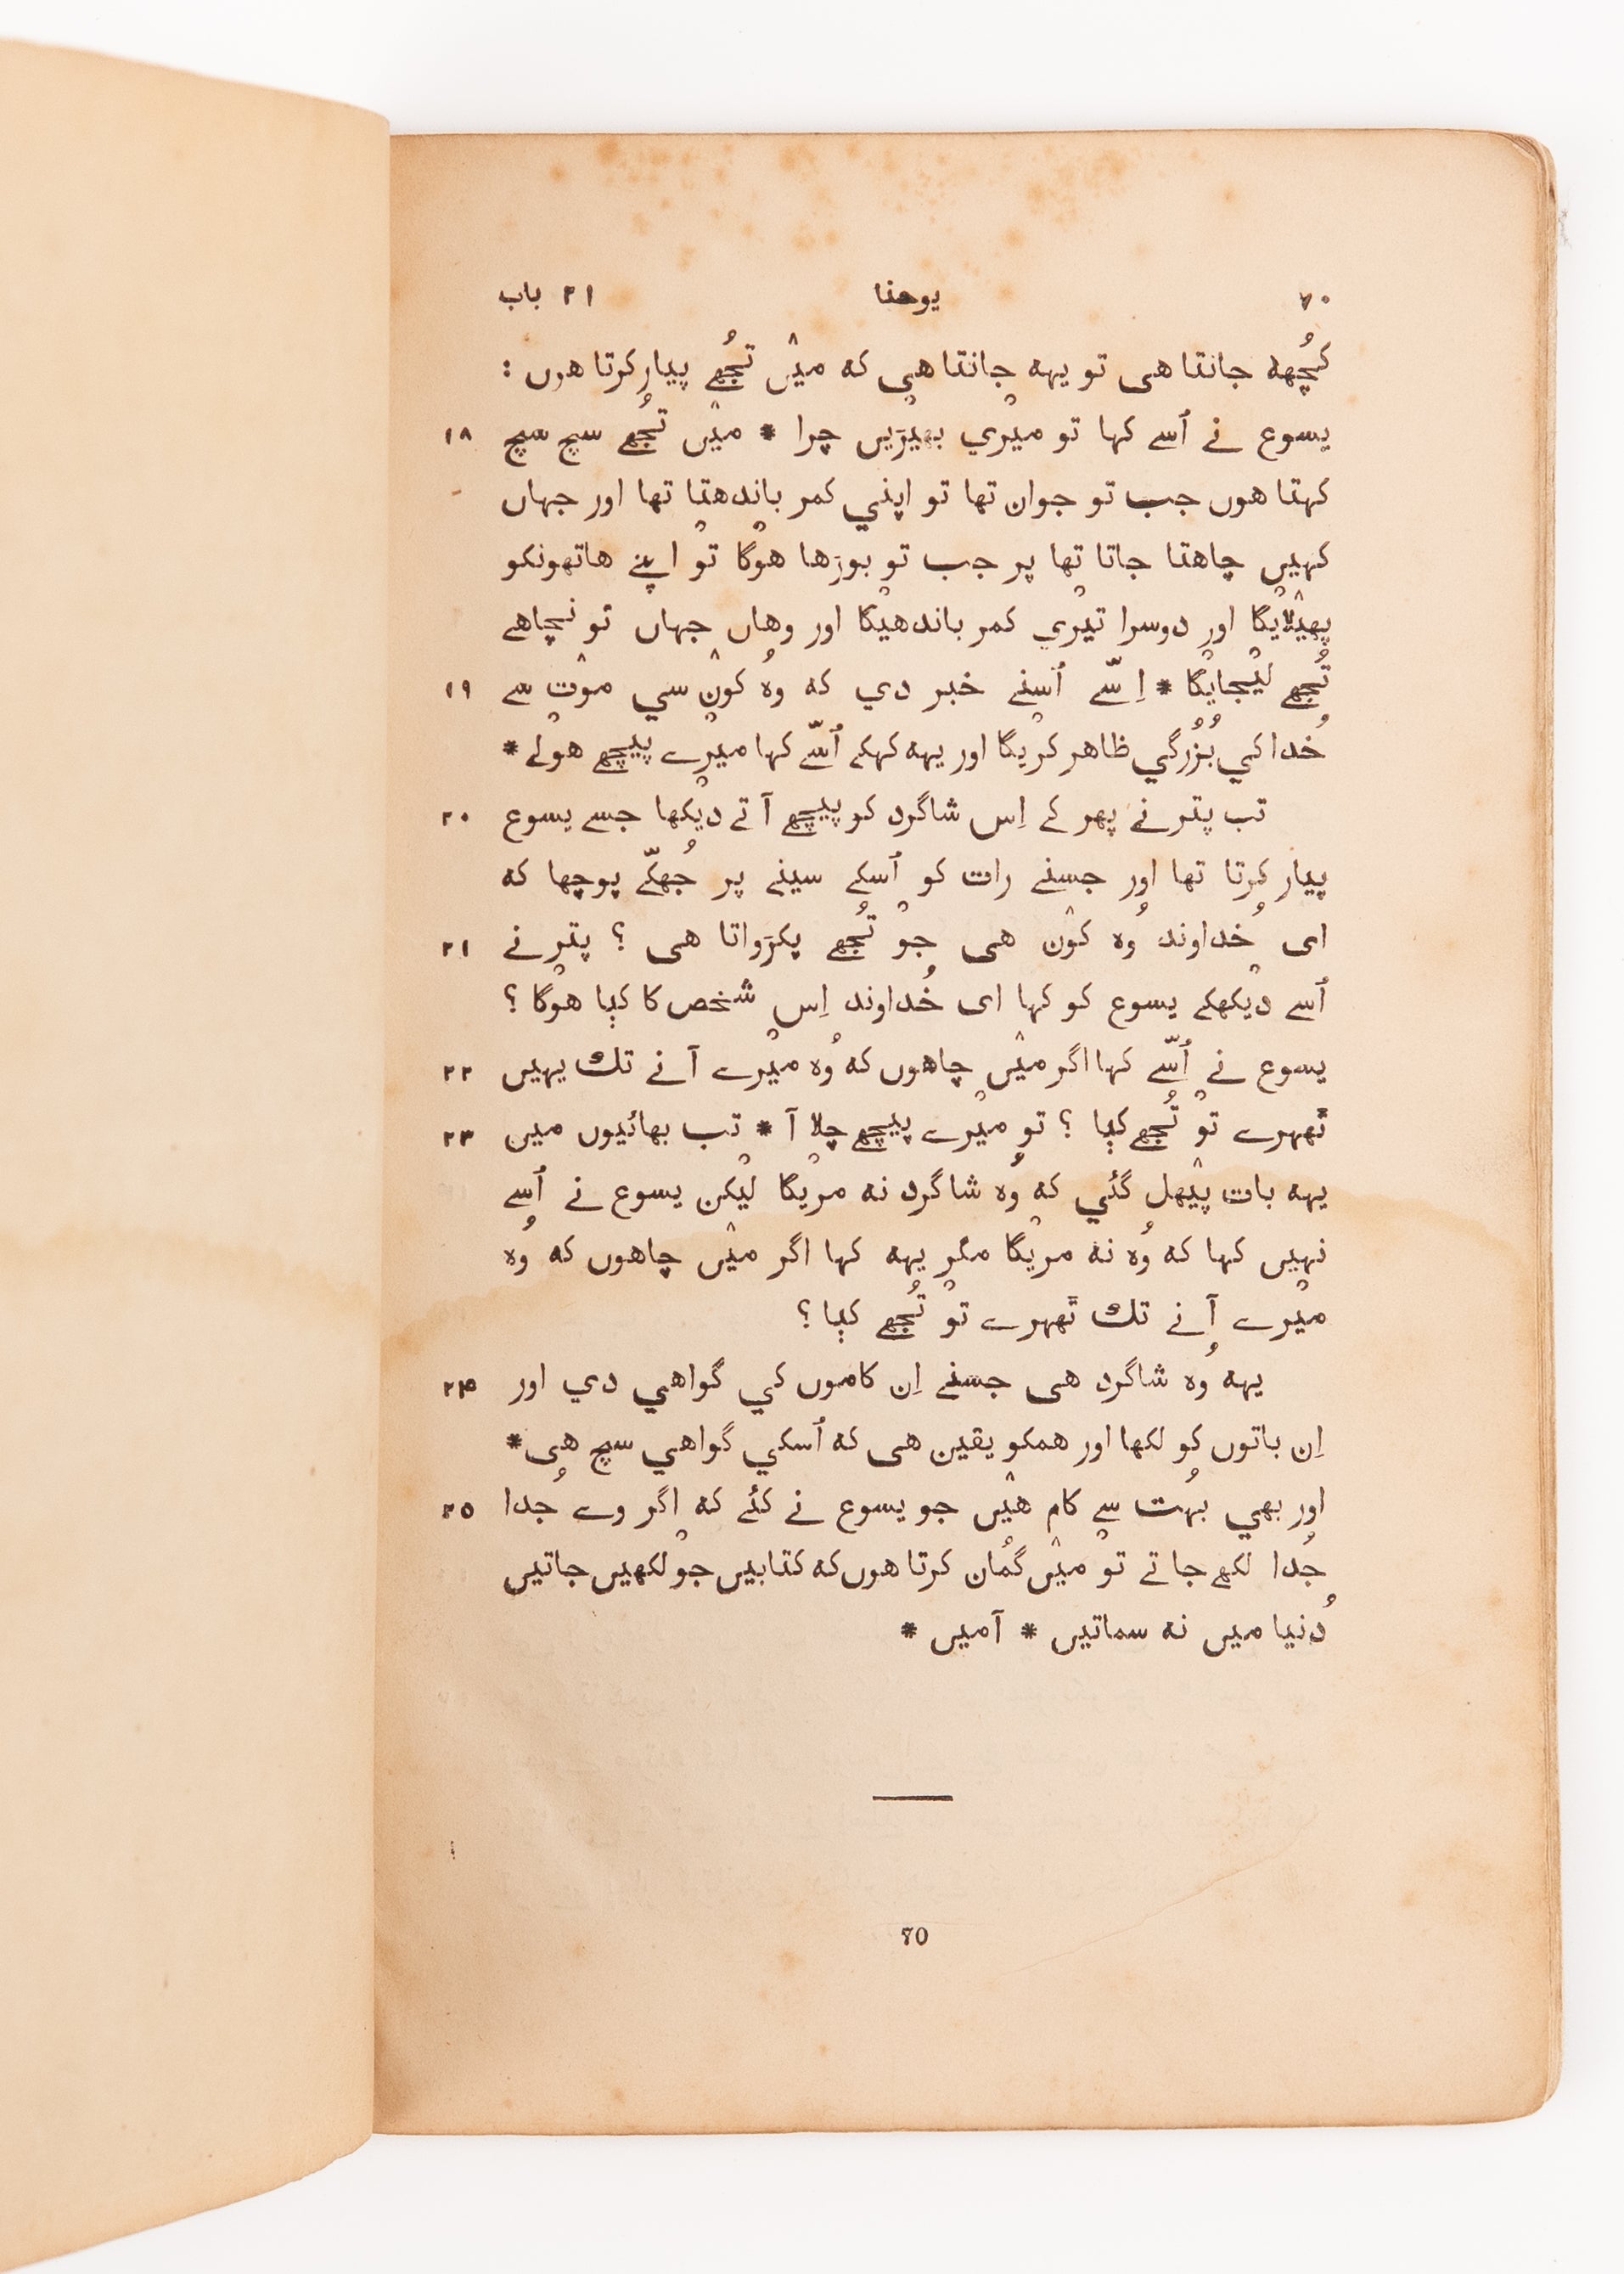 ٧٠ يوحنا ٢١ باب
کُچھہ جانتا هی تو یہہ جانتا هی کہ میں تُجھے پیار کرتا هوں :
یسوع نے اُسے کہا تو میري بھیڑیں چرا * میں تُجھے سچ سچ ١٨
کہتا هوں جب تو جوان تھا تو اپني کمر باندھتا تھا اور جہاں
کہیں چاهتا جاتا تھا پر جب تو بوڑھا هوگا تو اپنے هاتھونکو
پھیلایگا اور دوسرا تیري کمر باندھیگا اور وهاں جہاں تو نچاهے
تُجھے لیجایگا * اِسّے اُسنے خبر دي کہ وُہ کون سي موت سے ١٩
خُدا کي بُزُرگي ظاهر کریگا اور یہہ کہکے اُسّے کہا میرے پیچھے هولے *
تب پتر نے پھر کے اِس شاگرد کو پیچھے آتے دیکھا جسے یسوع ٢٠
پیار کرتا تھا اور جسنے رات کو اُسکے سینے پر جُھکّے پوچھا کہ
ای خُداوند وُہ کون هی جو تُجھے پکڑواتا هی ؟ پتر نے ٢١
اُسے دیکھکے یسوع کو کہا ای خُداوند اِس شخص کا کیا هوگا ؟
یسوع نے اُسّے کہا اگر میں چاهوں کہ وُہ میرے آنے تك یہیں ٢٢
ٹھہرے تو تُجھے کیا ؟ تو میرے پیچھے چلا آ * تب بھائیوں میں ٢٣
یہہ بات پھیل گئي کہ وُہ شاگرد نہ مریگا لیکن یسوع نے اُسے
نہیں کہا کہ وُہ نہ مریگا مگر یہہ کہا اگر میں چاهوں کہ وُہ
میرے آنے تك ٹھہرے تو تُجھے کیا ؟
یہہ وُہ شاگرد هی جسنے اِن کاموں کي گواهي دي اور ٢٤
اِن باتوں کو لکھا اور همکو یقین هی کہ اُسکي گواهي سچ هی *
اور بھي بہُت سے کام هیں جو یسوع نے کئے کہ اگر وے جُدا ٢٥
جُدا لکھے جاتے تو میں گُمان کرتا هوں کہ کتابیں جو لکھیں جاتیں
دُنیا میں نہ سماتیں * آمیں *
70